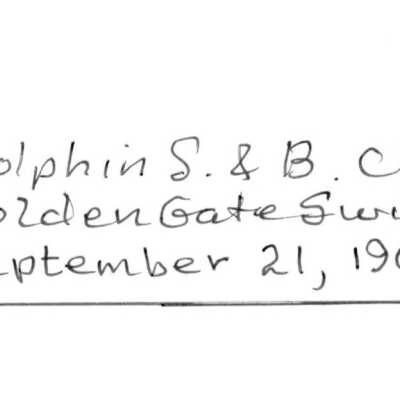 olphin S. & B. C
olden Gate Swi
eptember 21, 19